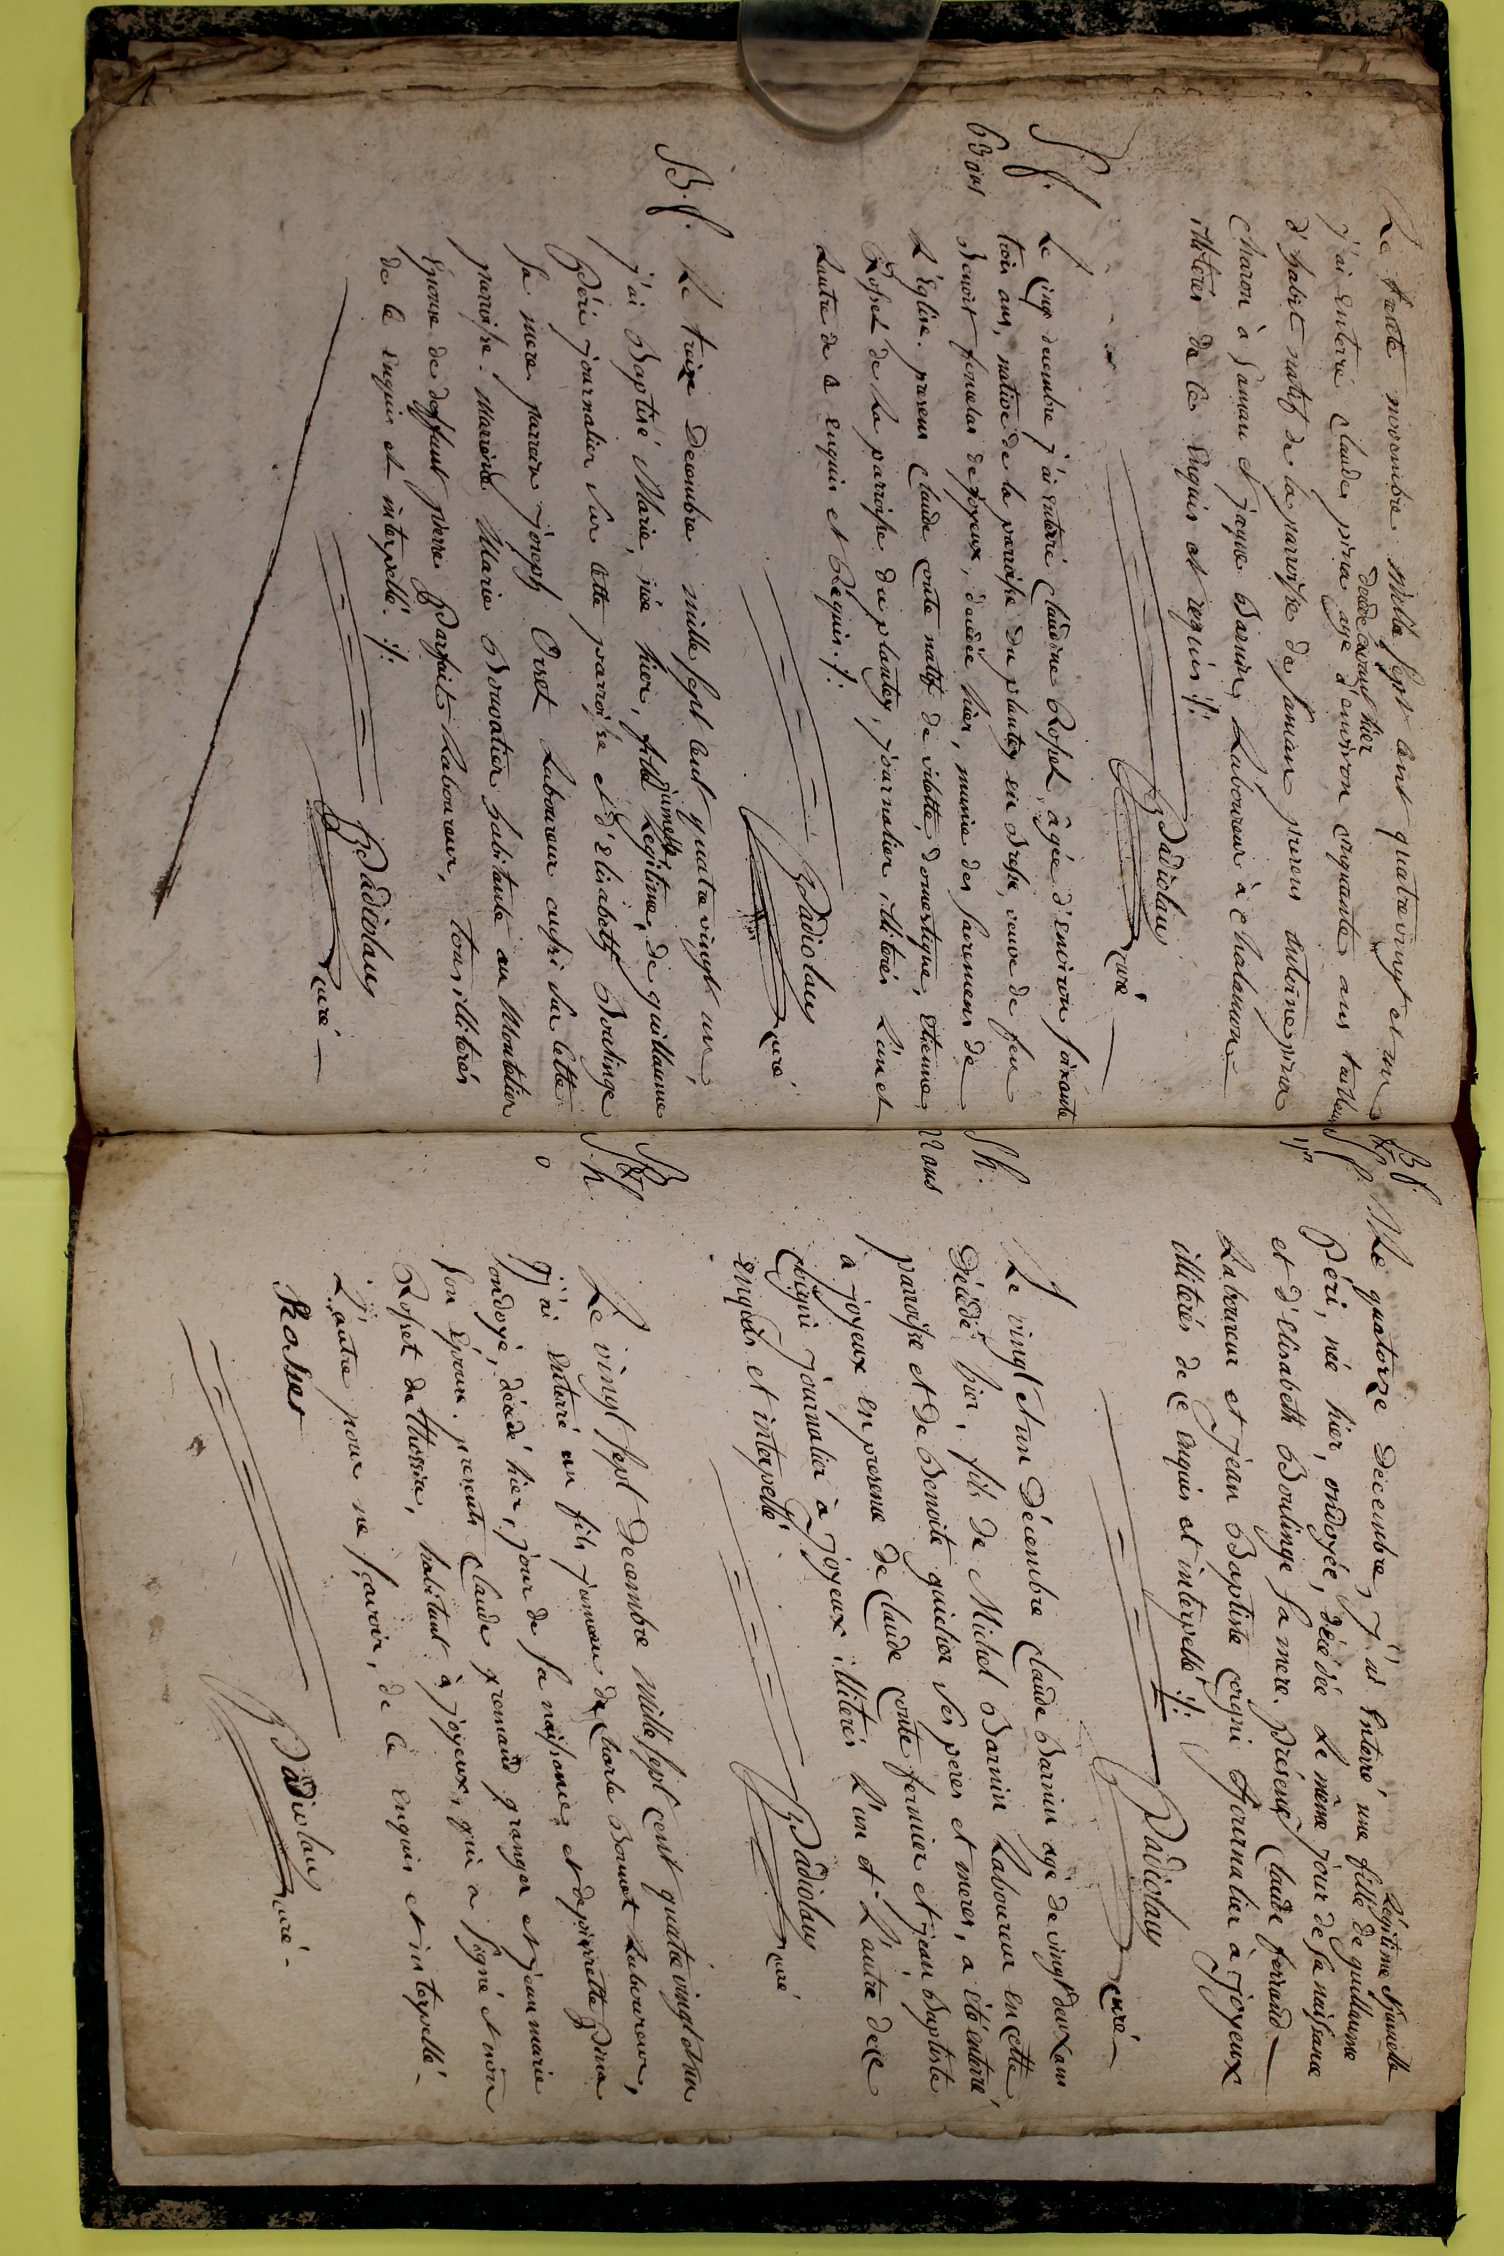 Le trente novembre mille sept cent quatrevingt et un
j'ai Enterré claude pina agé d'environ cinquante ans tailleur
decedé avant hier
d'habit natif de la parroisse de samian presens antoine pina
charon à samian et jaque Barnin, Laboureur à chalamon
illiterés de ce Enquis et requis ./.
Padiolau
curé
S. f.
63 ans
Le cinq decembre j'ai enterré claudine Rosset, âgée d'environ soixante
trois ans, native de la parroisse du plantey en Bresse, veuve de feu
Benoit de joyeux, decedée hier, munie des sacremens de
L'Eglise. presens claude conte natif de vilette, domestique, etienne
Rosset de La parroisse du plantey, journalier illiterés L'un et
Lautre de ce enquis et Requis. ./.
Padiolau
curé
B. f.
Le treize Decembre mille sept cent quatre vingt un,
j'ai Baptisé Marie, née hier, fille Legitime, de guillaume
jumelle
Péri journalier sur cette parroisse et d'Elisabeth Boulinge
sa mere parrain joseph Orset Laboureur aussi sur cette
parroisse. marraine Marie Bouvatier habitante au Montelier
Epouse de deffunt pierre Parfait Laboureur, tous illiterés
de ce enquis et interpellé. ./.
Padiolau
curé
B. f.
S. f.
Le quatorze Décembre, j'ai Enterré une fille de guillaume
Légitime & jumelle
Péri, née hier, ondoyée, décédée Le même jour de sa naissance
et d'Elisabeth Boulinge sa mere. Présens Claude ferrand
Laboureur et jean Baptiste corgni Journalier à Joyeux
illiterés de ce enquis et interpellé ./.
Padiolau
curé
S. h.
22 ans
Le vingt et un Décembre claude Barnin agé de vingt deux ans
Décédé hier, fils de Michel Barnin Laboureur en cette
parroisse et de Benoite ses peres et meres, a été enterré
à joyeux en presence de claude conte fermier et jean Baptiste
corgni journalier à joyeux illiterés L'un et L'autre de ce
enquis et interpellé.
Padiolau
curé
S. h.
Le vingt sept Decembre mille sept cent quatrevingt et un
j'ai Enterré un fils jumeau de charle Bonnet Laboureur,
ondoyé, décédé hier, jour de sa naissance, et de pierrette Pina
son Epouse. presents claude granger et jean marie
Rosset de Thossia, habitant à joyeux, qui a signé et non
L'autre pour ne sçavoir, de ce enquis et interpellé.
Rosset
Padiolau
curé.